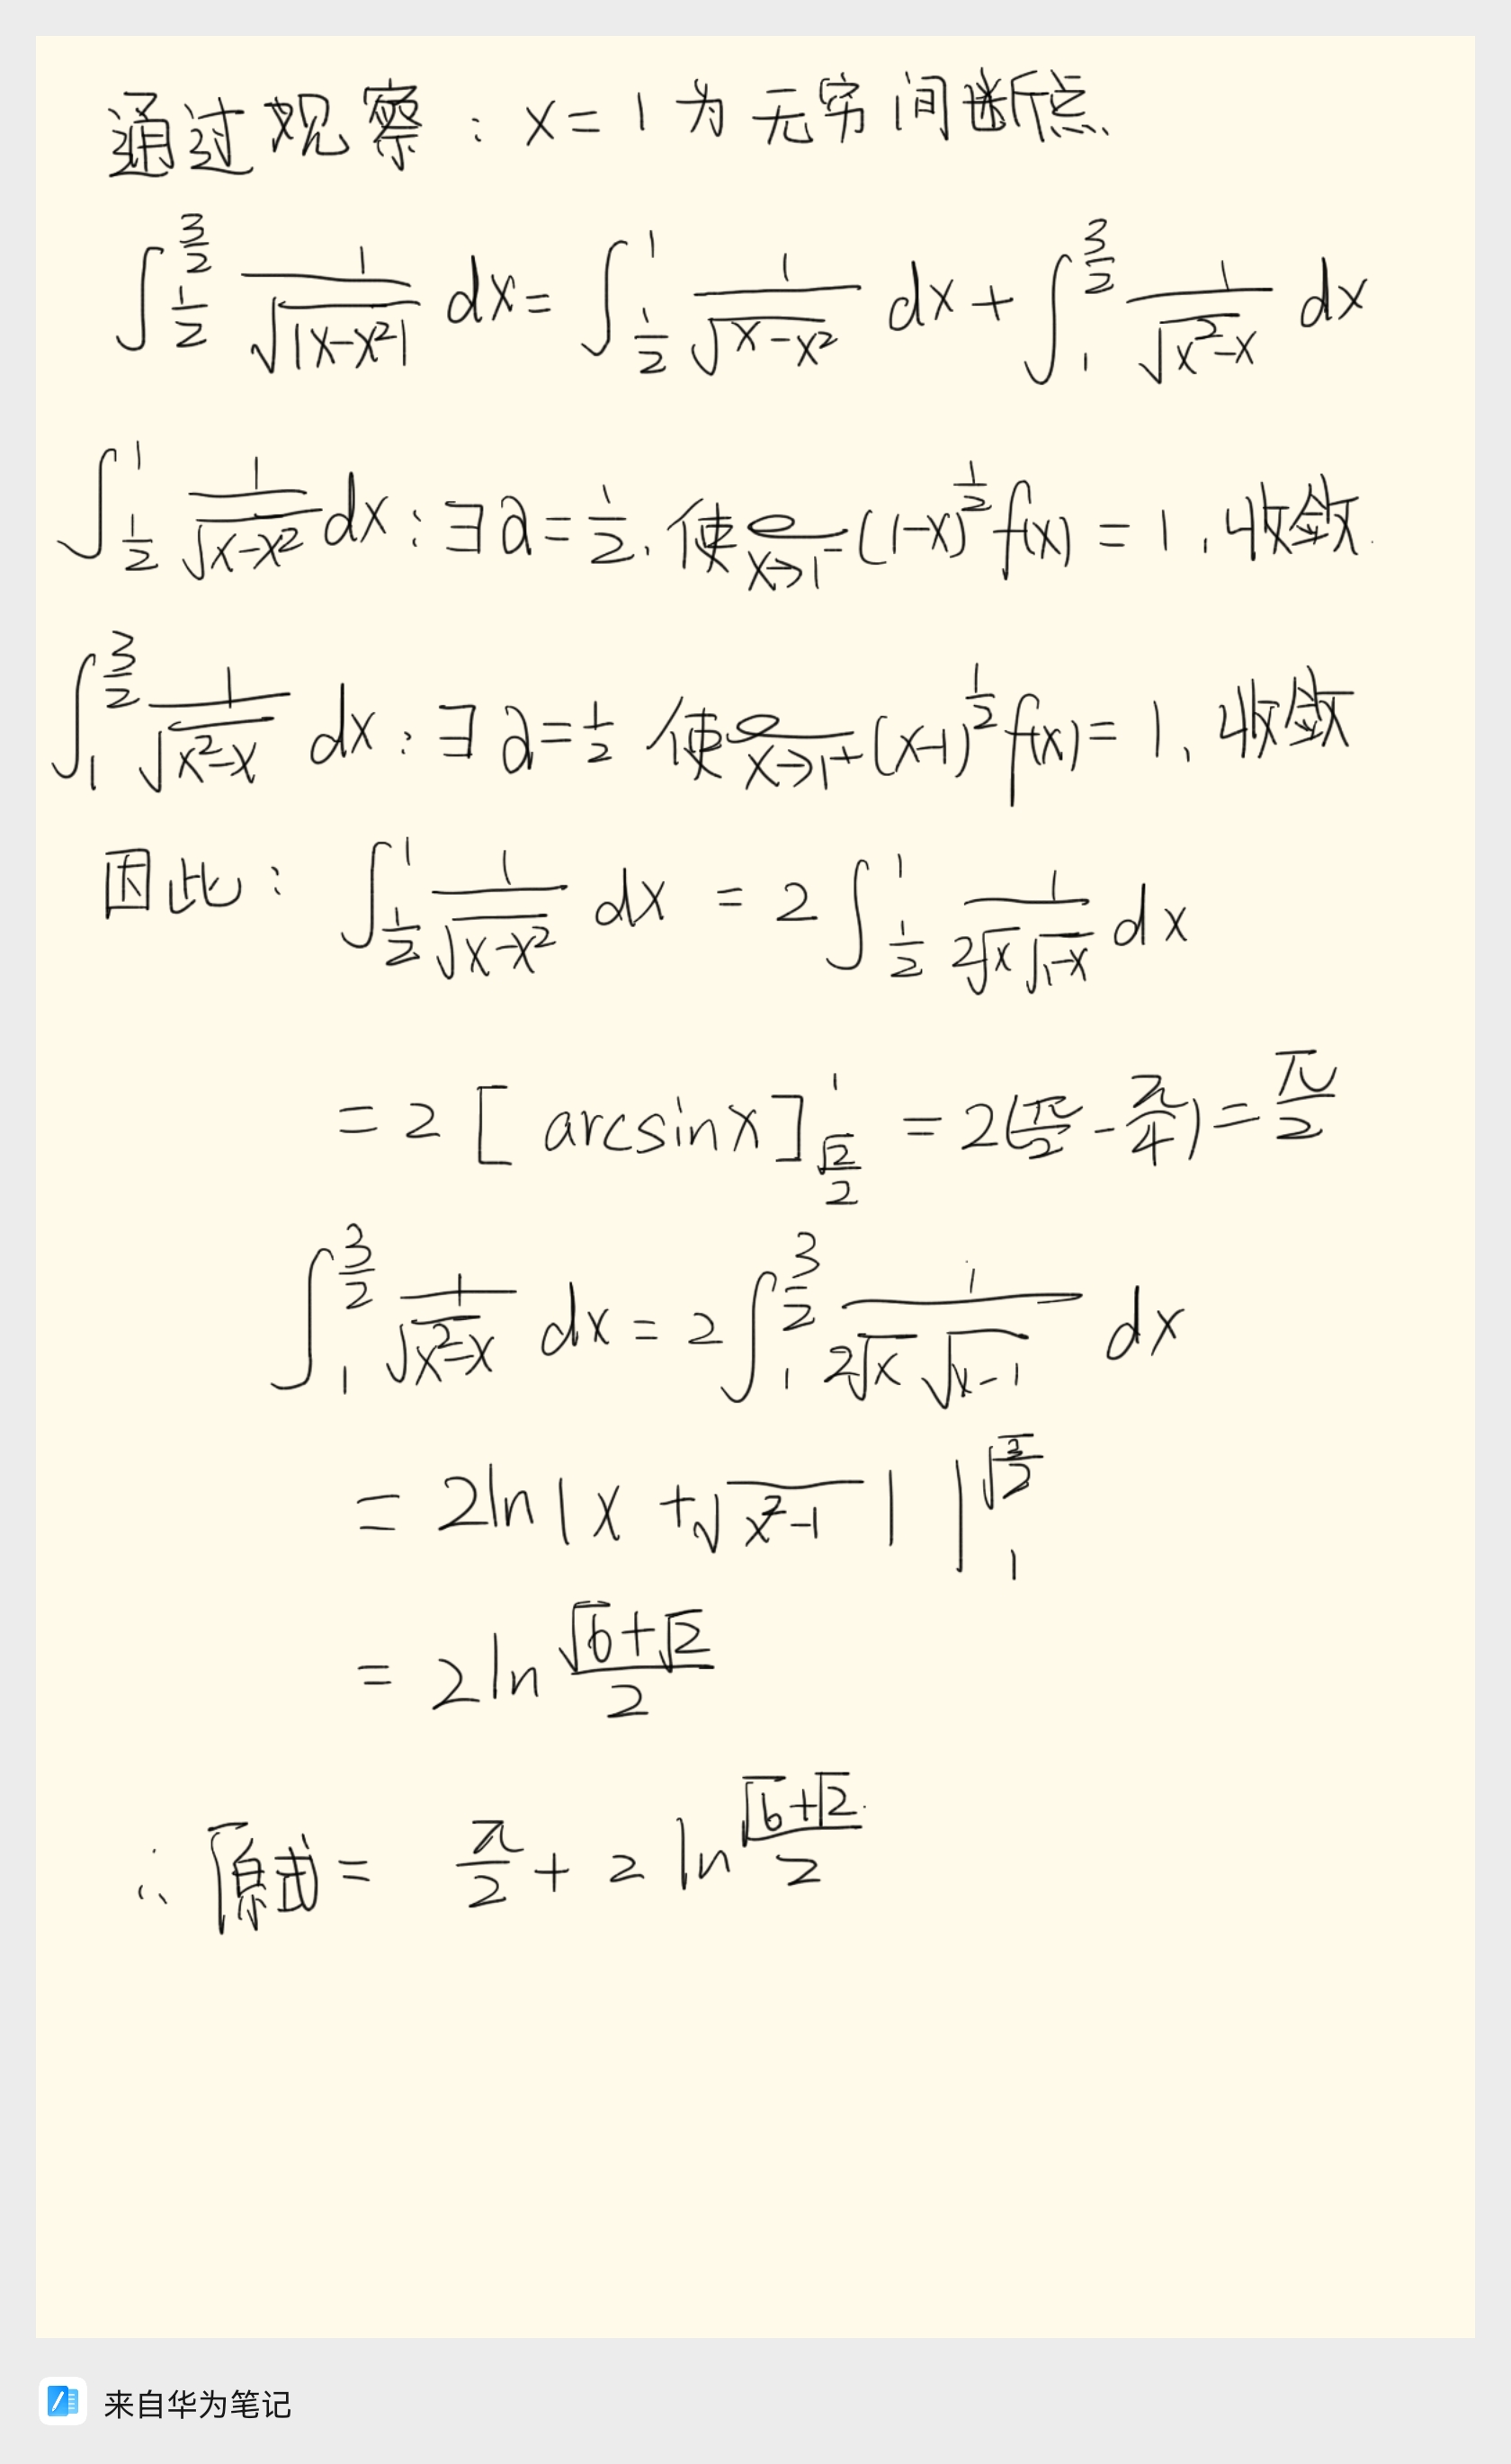 通过观察：x=1为无穷间断点
∫_{1/2}^{3/2} 1/√(|x-x²|) dx = ∫_{1/2}^{1} 1/√(x-x²) dx + ∫_{1}^{3/2} 1/√(x²-x) dx
∫_{1/2}^{1} 1/√(x-x²) dx：∃ a=1/2，使 ℓ_{x→1⁻} (1-x)^{1/2} f(x) = 1，收敛.
∫_{1}^{3/2} 1/√(x²-x) dx：∃ a=1/2 使 ℓ_{x→1⁺} (x-1)^{1/2} f(x) = 1，收敛
因此：∫_{1/2}^{1} 1/√(x-x²) dx = 2∫_{1/2}^{1} 1/(2√x√(1-x)) dx
= 2[arcsinx]_{√2/2}^{1} = 2(π/2 - π/4) = π/2
∫_{1}^{3/2} 1/√(x²-x) dx = 2∫_{1}^{3/2} 1/(2√x√(x-1)) dx
= 2ln|x+√(x²-1)| |_{1}^{√(3/2)}
= 2ln (√6+√2)/2
∴ 原式 = π/2 + 2ln (√6+√2)/2
来自华为笔记